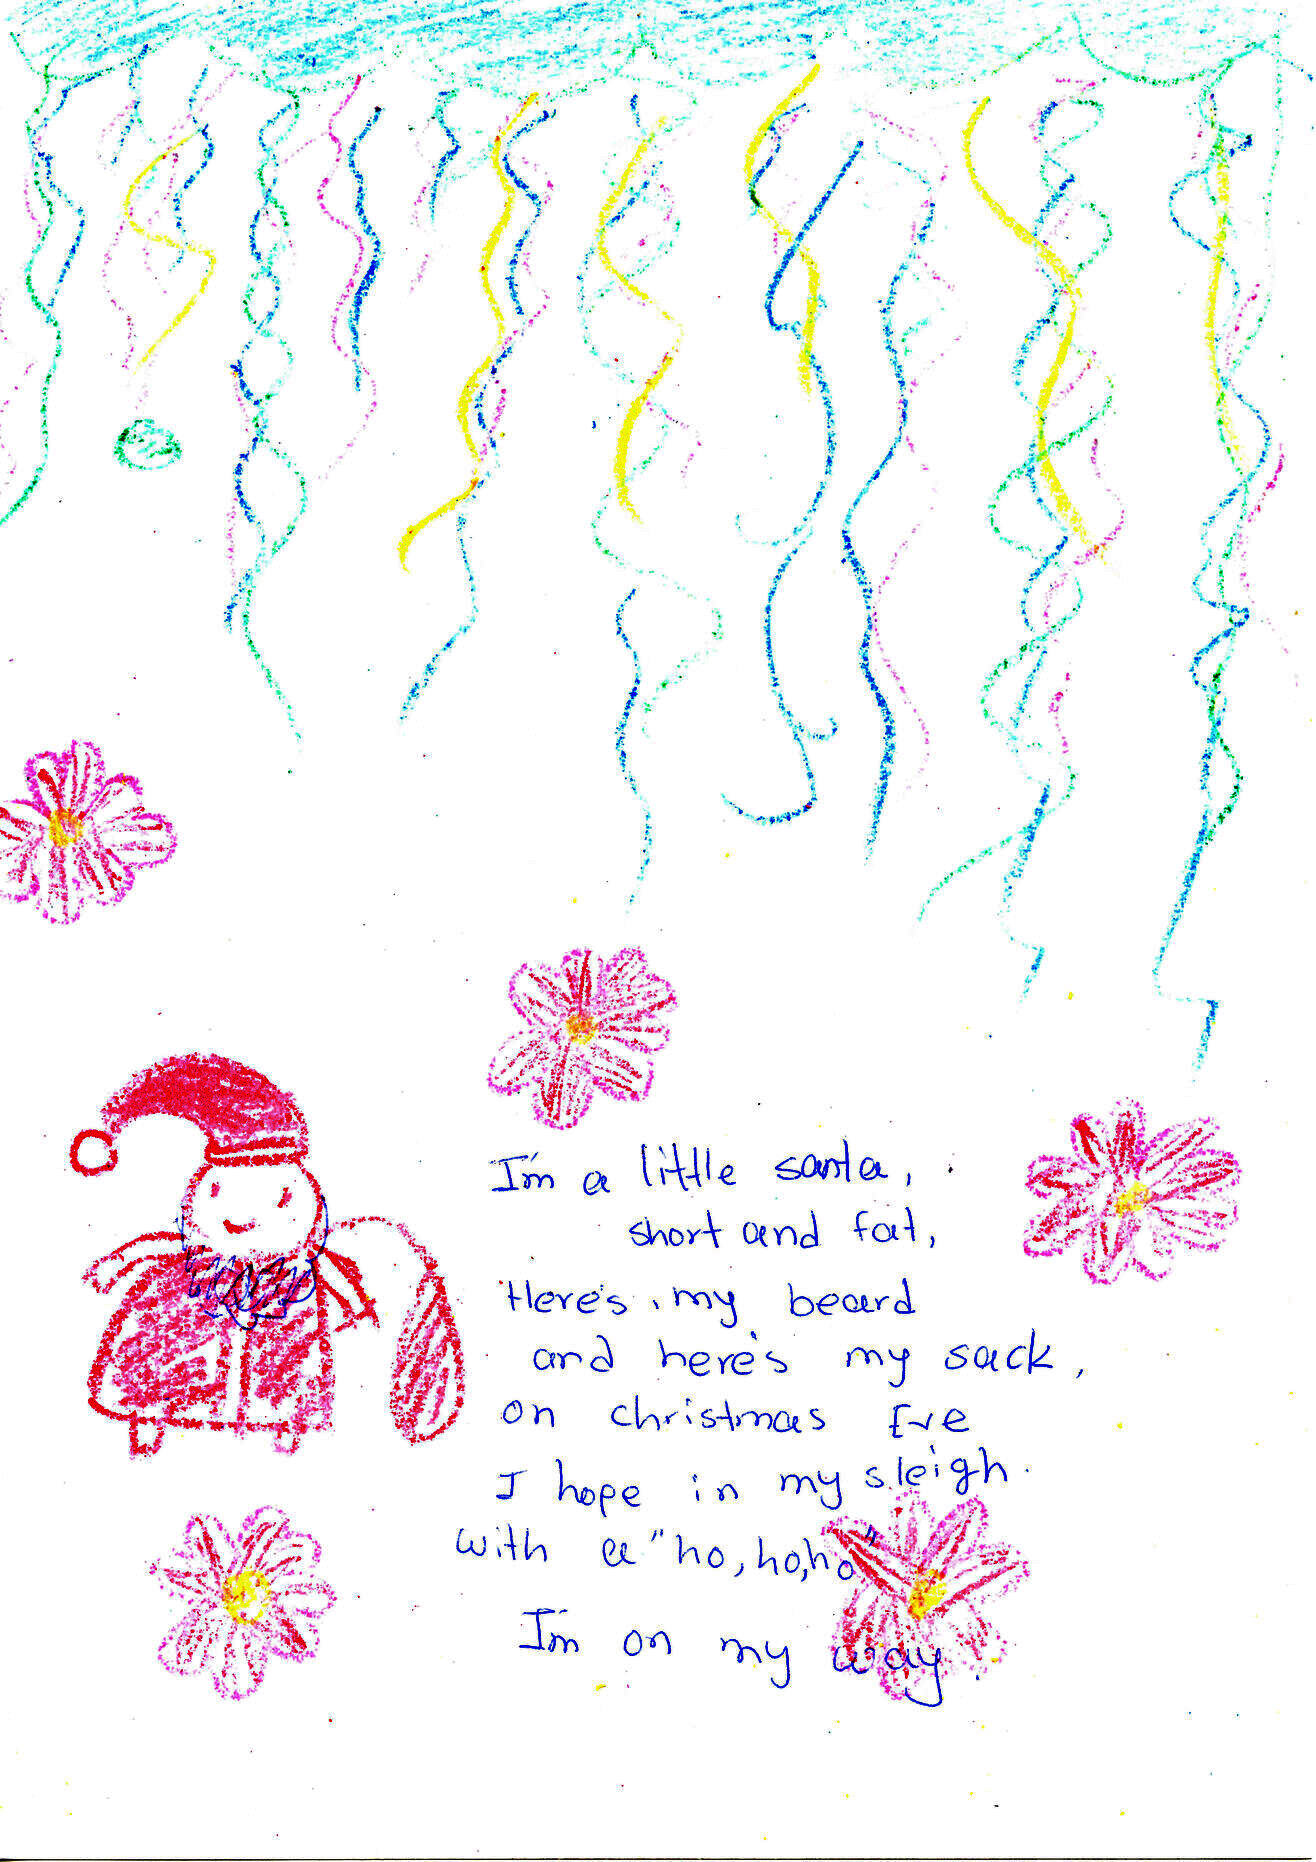 I'm a little santa,
short and fat,
Here's my beard
and here's my sack,
on christmas Eve
I hope in my sleigh.
with a "ho, ho, ho"
I'm on my way.